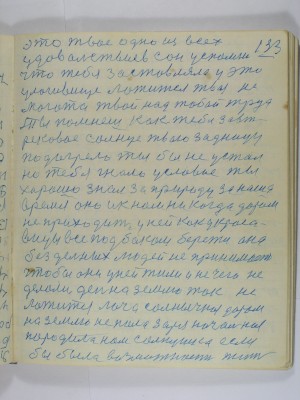 133
это твое одно из всех
удовольствиев сон успокои
что тебя заставляло у это
улогвище ложится ты не
могила твой над тобой труд
Ты помнеш как тебя завт-
реховое солнце твою задницу
подогрело ты бы не устал
но тебя гнало условие ты
хорошо знал за природу за наша
время оно и к нам не когда даром
не приходит, у ней как у краса-
вицы все под боком берети она
без денных людей не принимает
чтобы они у ней жили и не чего не
делали день на землю так не
ложится луча солнечная даром
на землю не пала заря начайная
породила нам солнушка если
бы была возможность